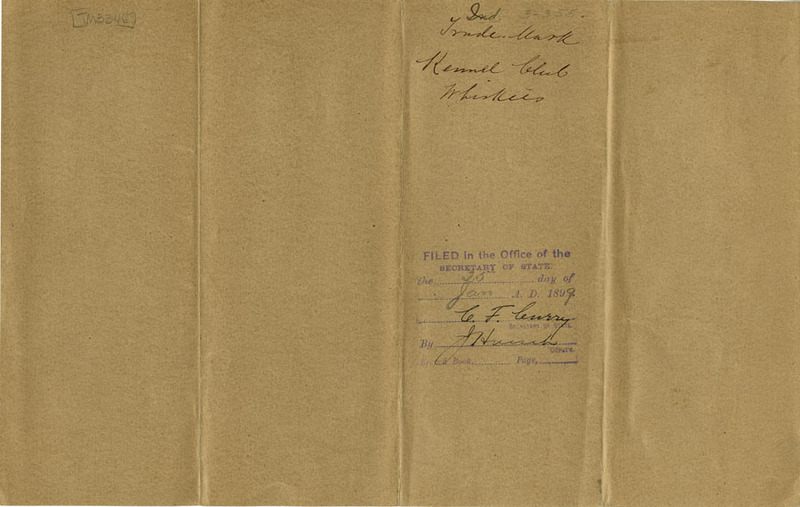 Ind.
Trade-Mark
Kennel Club
Whiskies
FILED in the Office of the
SECRETARY OF STATE
the 25 day of
Jan A. D. 1899.
C. F. Curry
Secretary of State.
By
Deputy.
Book Page,